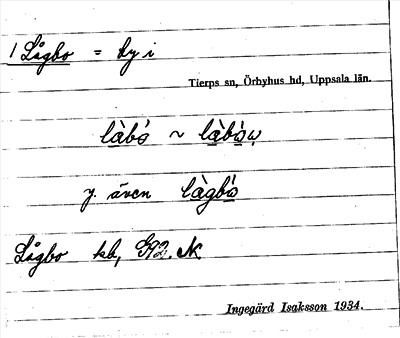 1 Lågbo = by i
Tierps sn, Örbyhus hd, Uppsala län.
làbó ~ làbòw
y. även làgbò
Lågbo kb, G92. N.
Ingegärd Isaksson 1934.